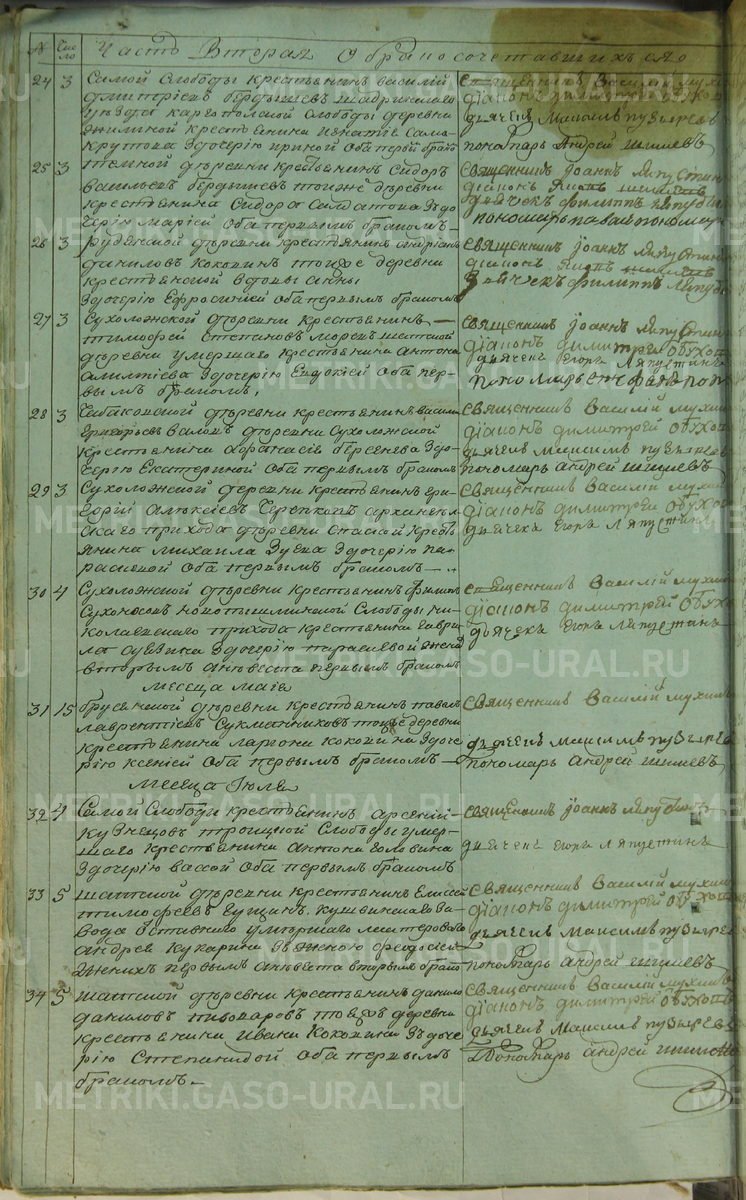 Часть Вторая О бракосочетавшихся
№ Число
24 3 Самой Слободы крестьянинъ василій
дмитріевъ бердышевъ шадринскаго
уезда каргопольской Слободы деревни
крестьянина игнатіе Само
крутова здочерію ириной Оба первымъ бракомъ
Священникъ Василій мухинъ
діаконъ димитрей Обухов
дьячекъ Максимъ пузыревъ
пономарь Андрей шишевъ
25 3 темной дѣревни крестьянинъ Сидоръ
васильевъ бердышевъ тояже дѣревни
крестьянина Сидора Салдатова здо
черію маріей Оба первымъ бракомъ
Священникъ Іоаннъ Ляпустинъ
діаконъ Яковъ шишевъ
дьячекъ филиппъ Ляпусти
пономарь павелъ пономар
26 3 рудянской дѣревни крестьянинъ андріанъ
даниловъ Кокшинъ тояже деревни
крестьянской вдовы анны
здочерію Ефросиніей Оба первымъ бракомъ
Священникъ Іоаннъ Ляпустинъ
діаконъ Яковъ шишевъ
дьячекъ филиппъ Ляпусти
27 3 Сухоложской дѣревни крестьянинъ
тимофей Степановъ шатской
дѣревни умершаго крестьянина Антона
здочерію Евдокіей Оба пер
вымъ бракомъ
Священникъ Іоаннъ Ляпустинъ
діаконъ димитрей Обухов
дьячекъ Егоръ Ляпустинъ
пономарь Стефанъ поп
28 3 дѣревни крестьянинъ василій
Григорьевъ валовъ дѣревни Сухоложской
крестьянина Афанасія берсенева здо
черію Екатериной Оба первымъ бракомъ
Священникъ Василій мухин
діаконъ димитрей Обухов
дьячекъ Максимъ пузыревъ
пономарь Андрей шишевъ
29 3 Сухоложской деревни крестьянинъ гри
горій алексѣевъ Черепковъ архангел
скаго прихода дѣревни Спаской кресть
янина михаила Зуева здочерію па
раскевой Оба первымъ бракомъ
Священникъ Василій мухин
діаконъ димитрей Обухов
дьячекъ Егоръ Ляпустинъ
30 4 Сухоложской дѣревни крестьянинъ филипъ
Сухоносовъ новопышминской Слободы ни
колаевскаго прихода крестьянина гаври
ла здочерію параскевой жених
вторымъ аневеста первымъ бракомъ
Священникъ Василій мухин
діаконъ димитрей Обухов
дьячекъ Егоръ Ляпустинъ
Месеца Маіе
31 15 брусянской дѣревни крестьянинъ павелъ
лаврентіевъ Сукманниковъ тояже деревни
крестьянина лариона Кокшина здоче
рію ксеніей Оба первымъ бракомъ
Священникъ Василій мухин
дьячекъ Максимъ пузыре
пономарь Андрей шишевъ
Месеца Іюле
32 4 Самой Слободы крестьянинъ арсеній
кузнецовъ троицкой Слободы умер
шаго крестьянина антона головина
здочерію вассой Оба первымъ бракомъ
Священникъ Іоаннъ Ляпустинъ
дьячекъ Егоръ Ляпустинъ
33 5 шатской дѣревни крестьянинъ Елисей
тимофеевъ Кушвинскаго за
вода Оставшей умершаго мастероваго
андрея Кукарина зженою федосіей
Женихъ первымъ аневѣста вторымъ брако
Священникъ Василій мухин
діаконъ димитрей Обухов
дьячекъ Максимъ пузырев
пономарь Андрей шишевъ
34 5 шатской дѣревни крестьянинъ данило
даниловъ пивоваровъ тояже деревни
крестьянина Ивана Кокшина здоче
рію Степанидой Оба первымъ
бракомъ
Священникъ Василій мухин
діаконъ димитрей Обухов
дьячекъ Максимъ пузырев
Пономарь андрей шишевъ
METRIKI.GASO-URAL.RU